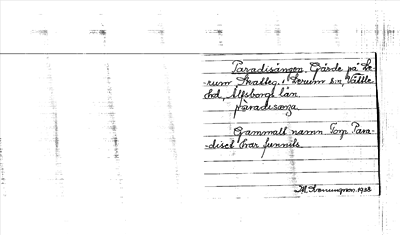 Paradisängen. Gärde på Le-
rum Skatteg. i Lerum sn, Vättle
hd, Älfsborgs län
pàradisæŋa
Gammalt namn Torp Para-
diset har funnits.
1938